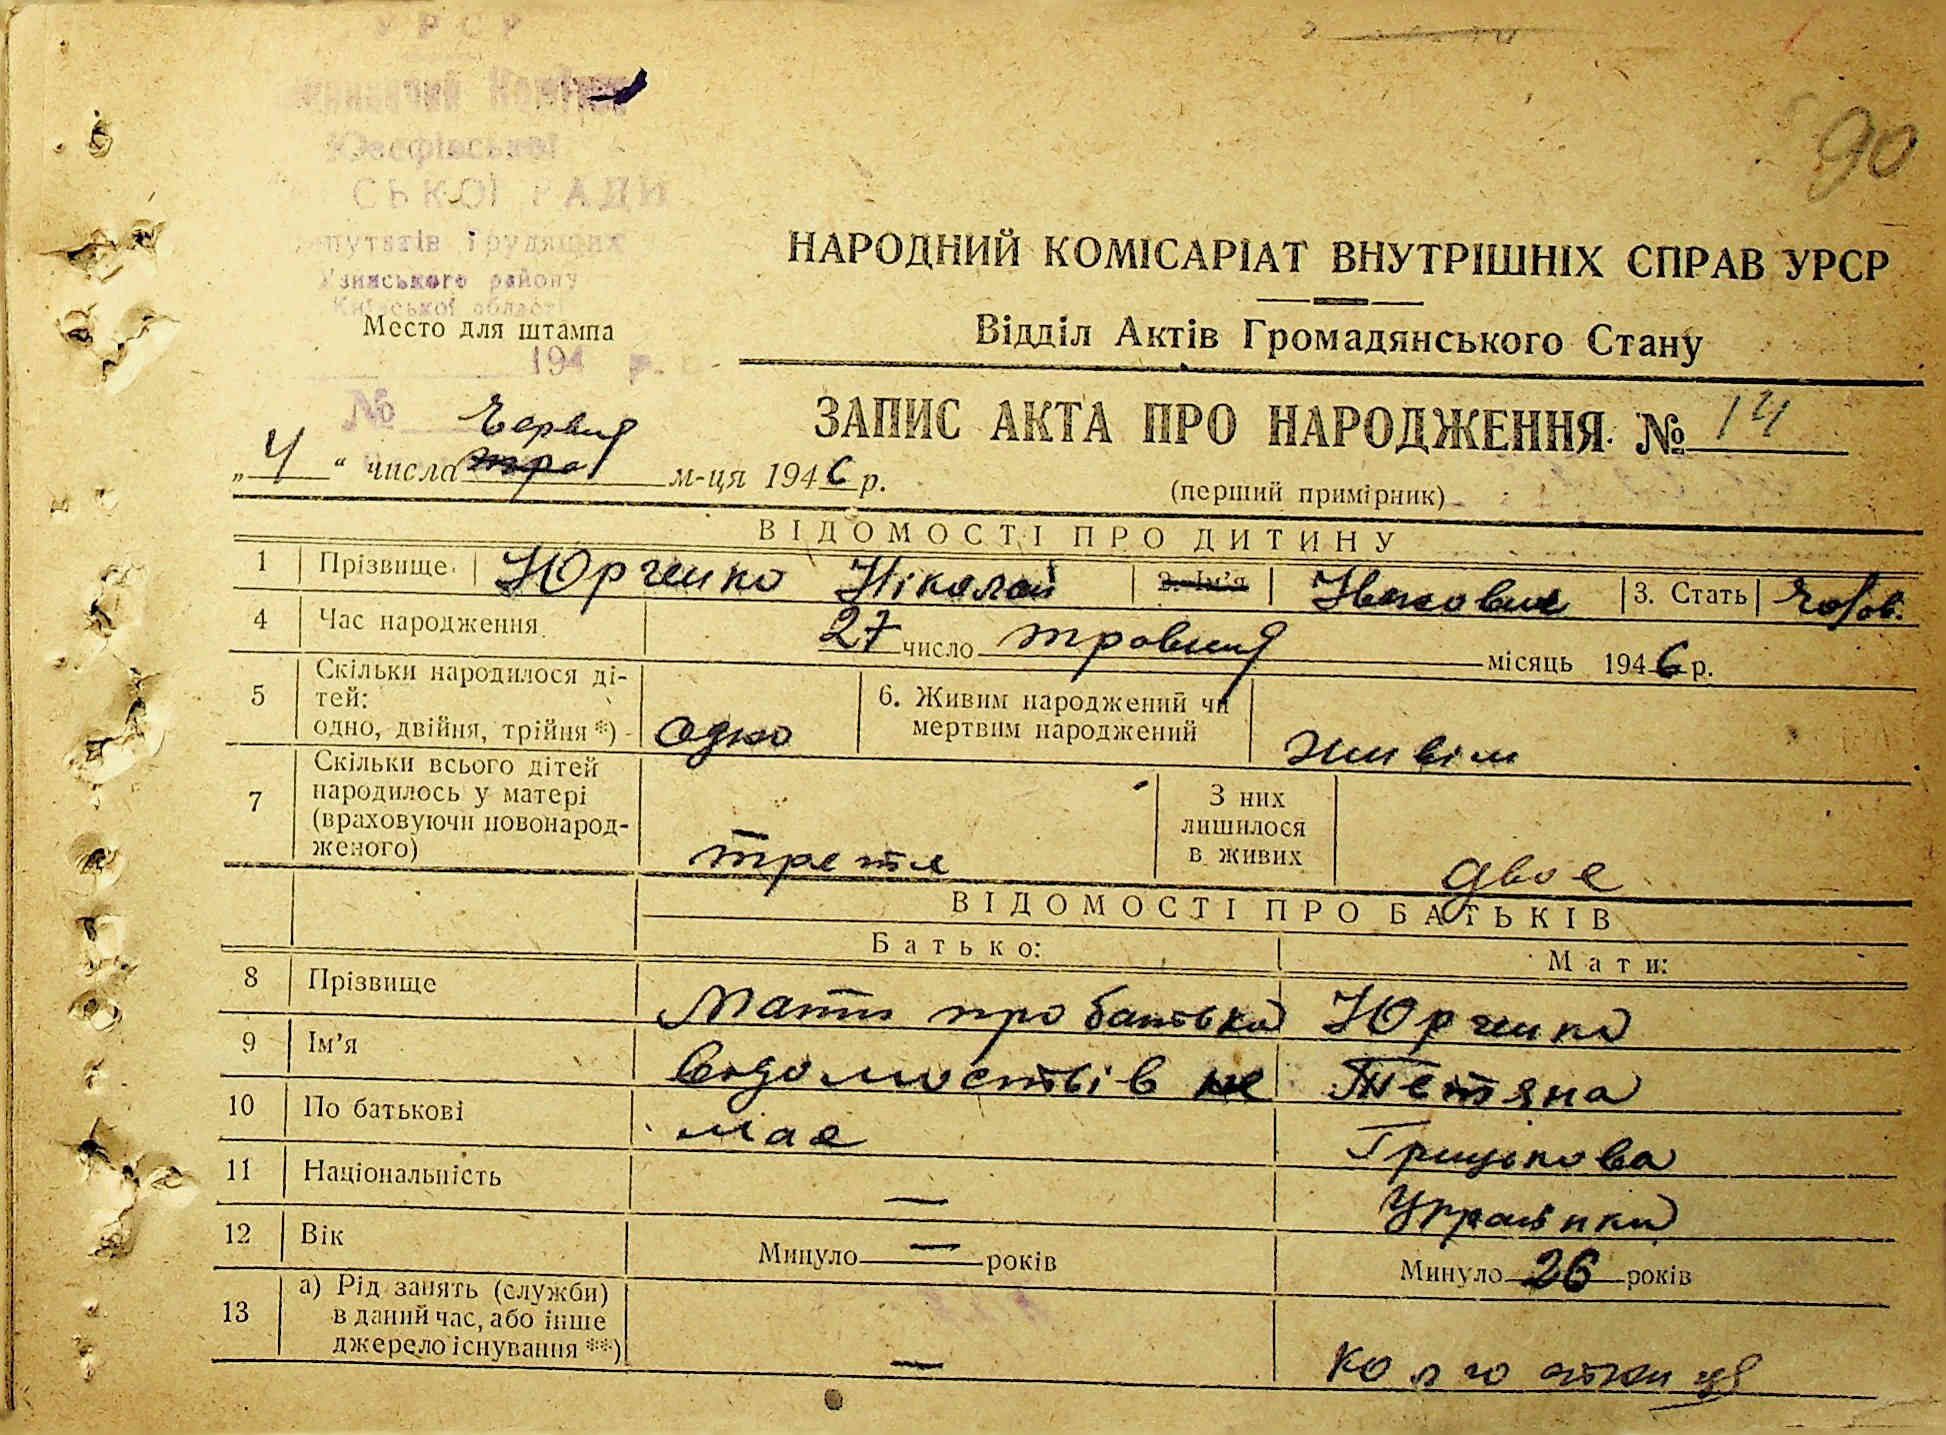 УРСР
Юзефівської
СЬКОЇ РАДИ
путатів трудящих
Узинського району
Київської області
Место для штампа
194 р.
№
90
НАРОДНИЙ КОМІСАРІАТ ВНУТРІШНІХ СПРАВ УРСР
Відділ Актів Громадянського Стану
ЗАПИС АКТА ПРО НАРОДЖЕННЯ № 14
(перший примірник)
Червня
„ 4 “ числа тра м-ця 1946 р.
ВІДОМОСТІ ПРО ДИТИНУ
1 Прізвище Юрченко Ніколай 2. Ім'я Іванович 3. Стать чолов.
4 Час народження 27 число травня місяць 1946 р.
5 Скільки народилося ді-
тей:
одно, двійня, трійня *) одно
6. Живим народжений чи
мертвим народжений живім
7 Скільки всього дітей
народилось у матері
(враховуючи новонарод-
женого) третє
З них
лишилося
в живих двоє
ВІДОМОСТІ ПРО БАТЬКІВ
Батько: Мати:
8 Прізвище Мати про батька Юрченко
9 Ім'я ведомостьів не Тетяна
10 По батькові має Грицькова
11 Національність — Українка
12 Вік Минуло — років Минуло 26 років
13 а) Рід занять (служби)
в даний час, або інше
джерело існування **) — колгостниця